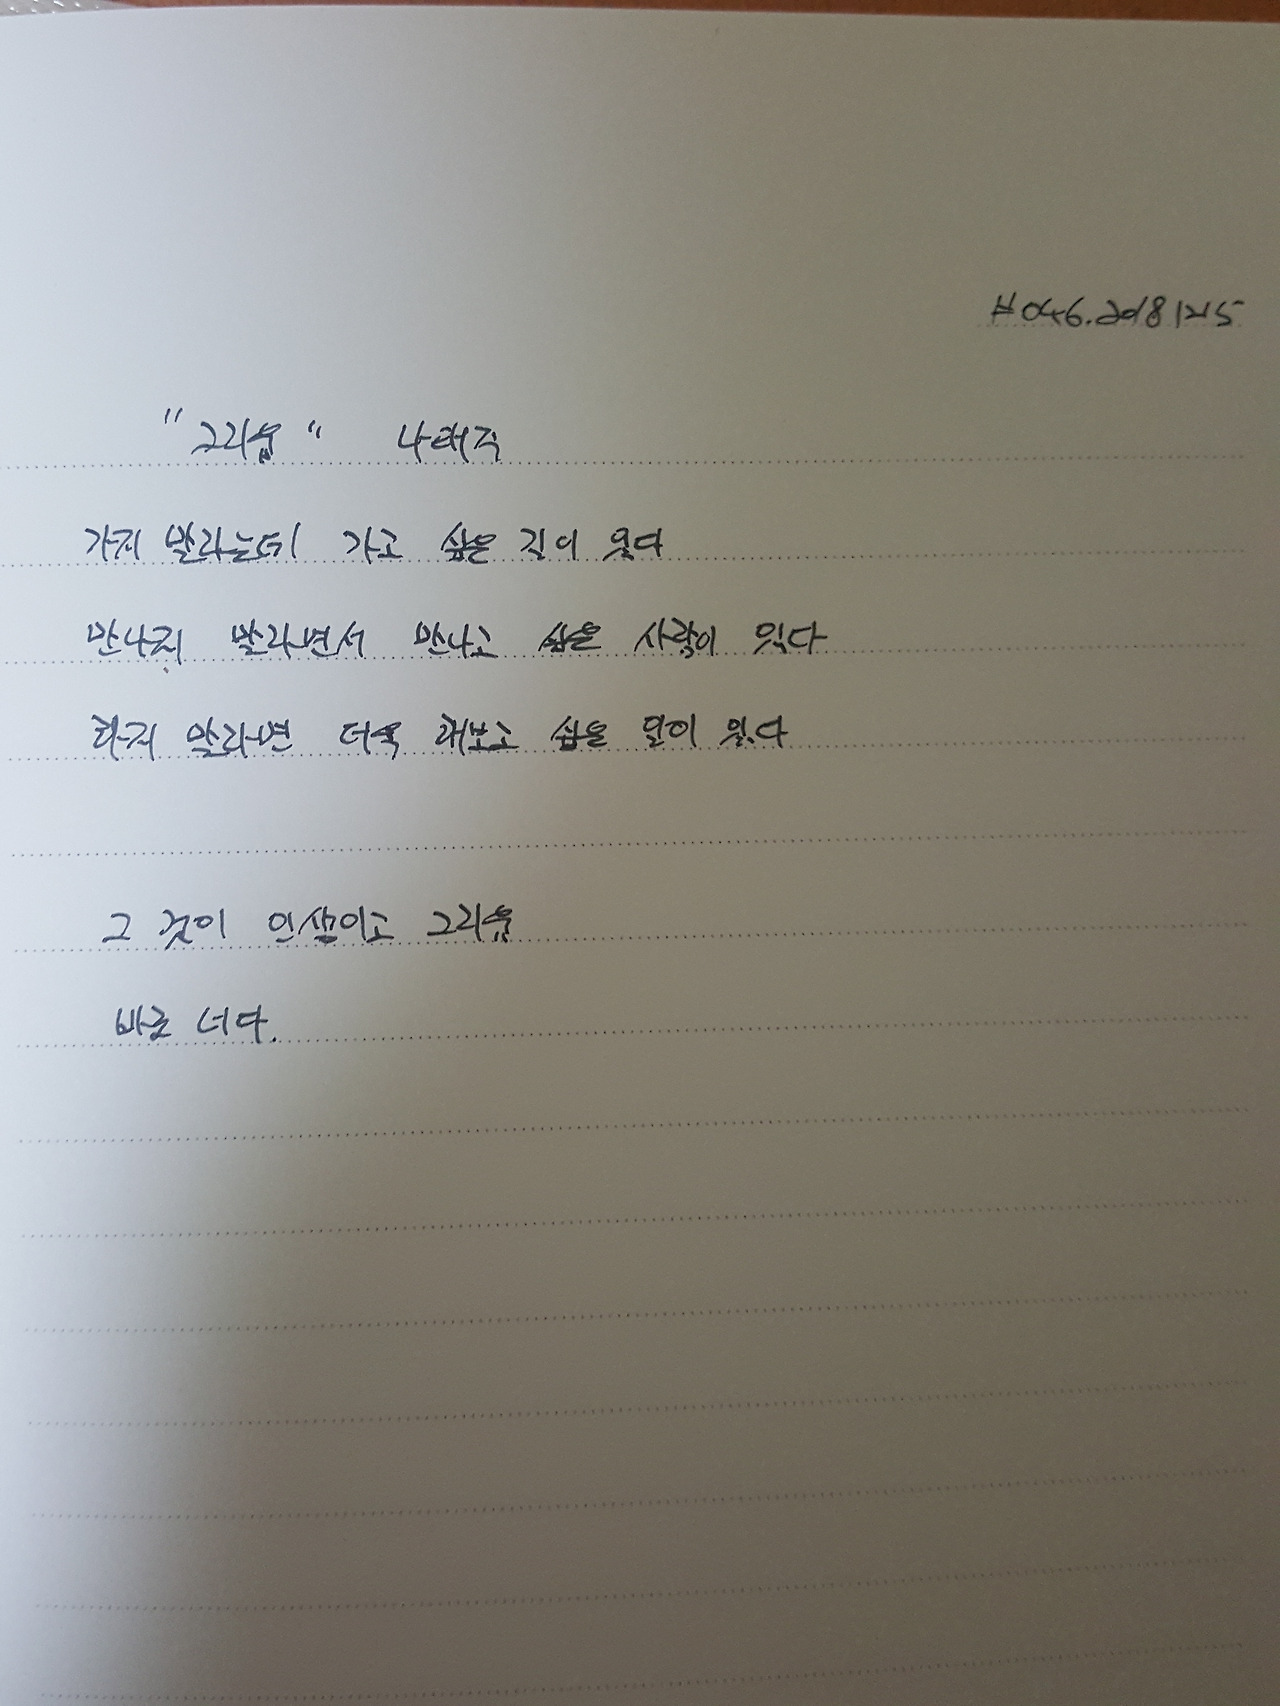 #046.20181215
"그리움" 나태주
가지 말라는데 가고 싶은 길이 있다
만나지 말라면서 만나고 싶은 사람이 있다
하지 말라면 더욱 해보고 싶은 일이 있다
그 것이 인생이고 그리움
바로 너다.